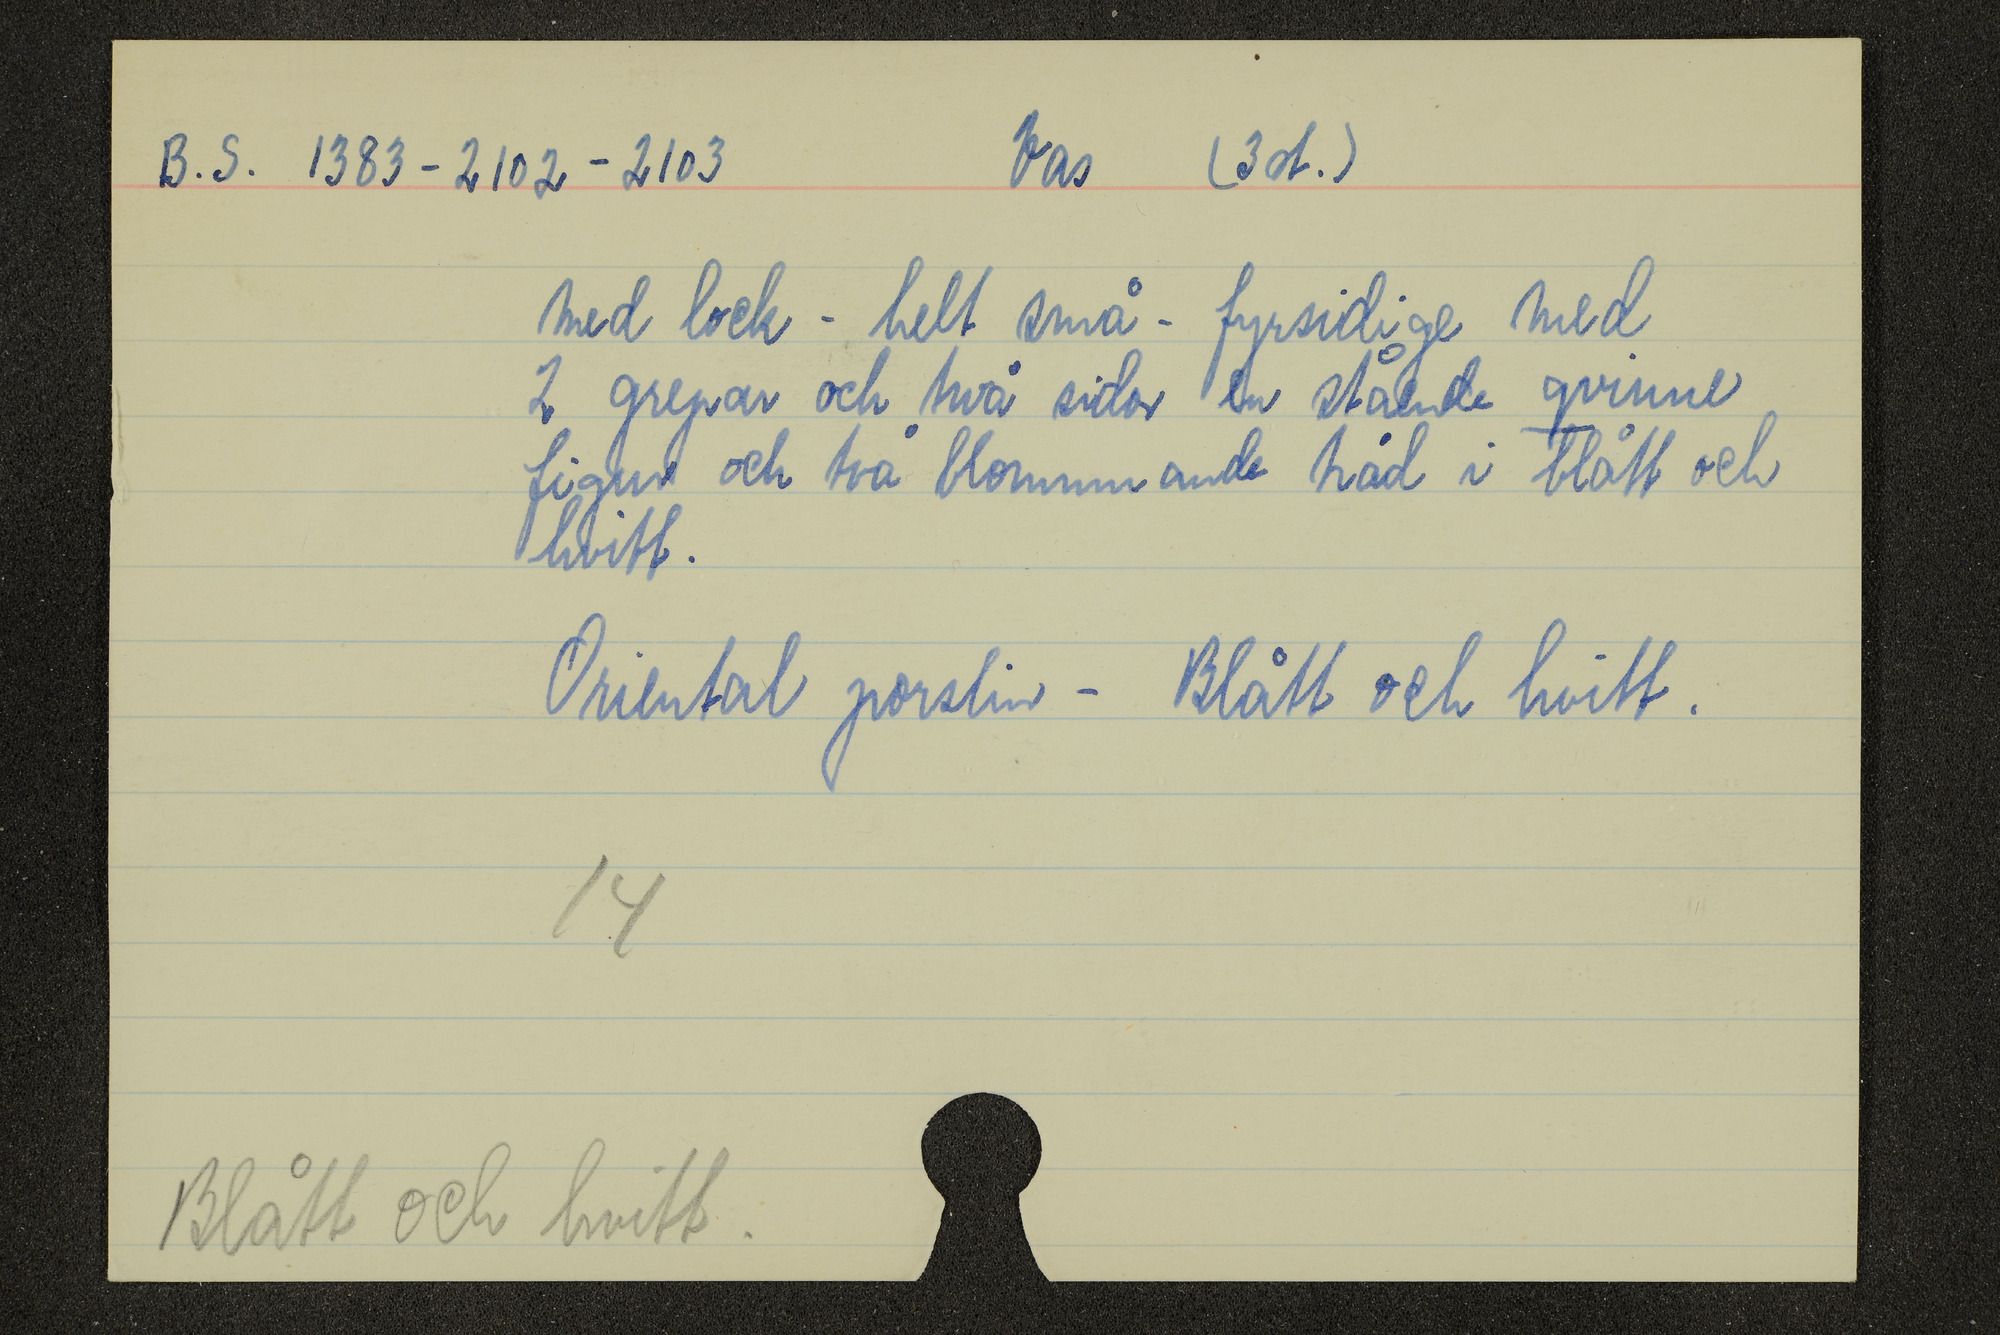 B.S. 1383-2102-2103 Vas (3 st.)
med lock - helt små - fyrsidige med
2 grepar och två sidor en stående qvinne
figur och två blommande träd i blått och
hvitt.
Oriental porslin - Blått och hvitt.
14
Blått och hvitt.